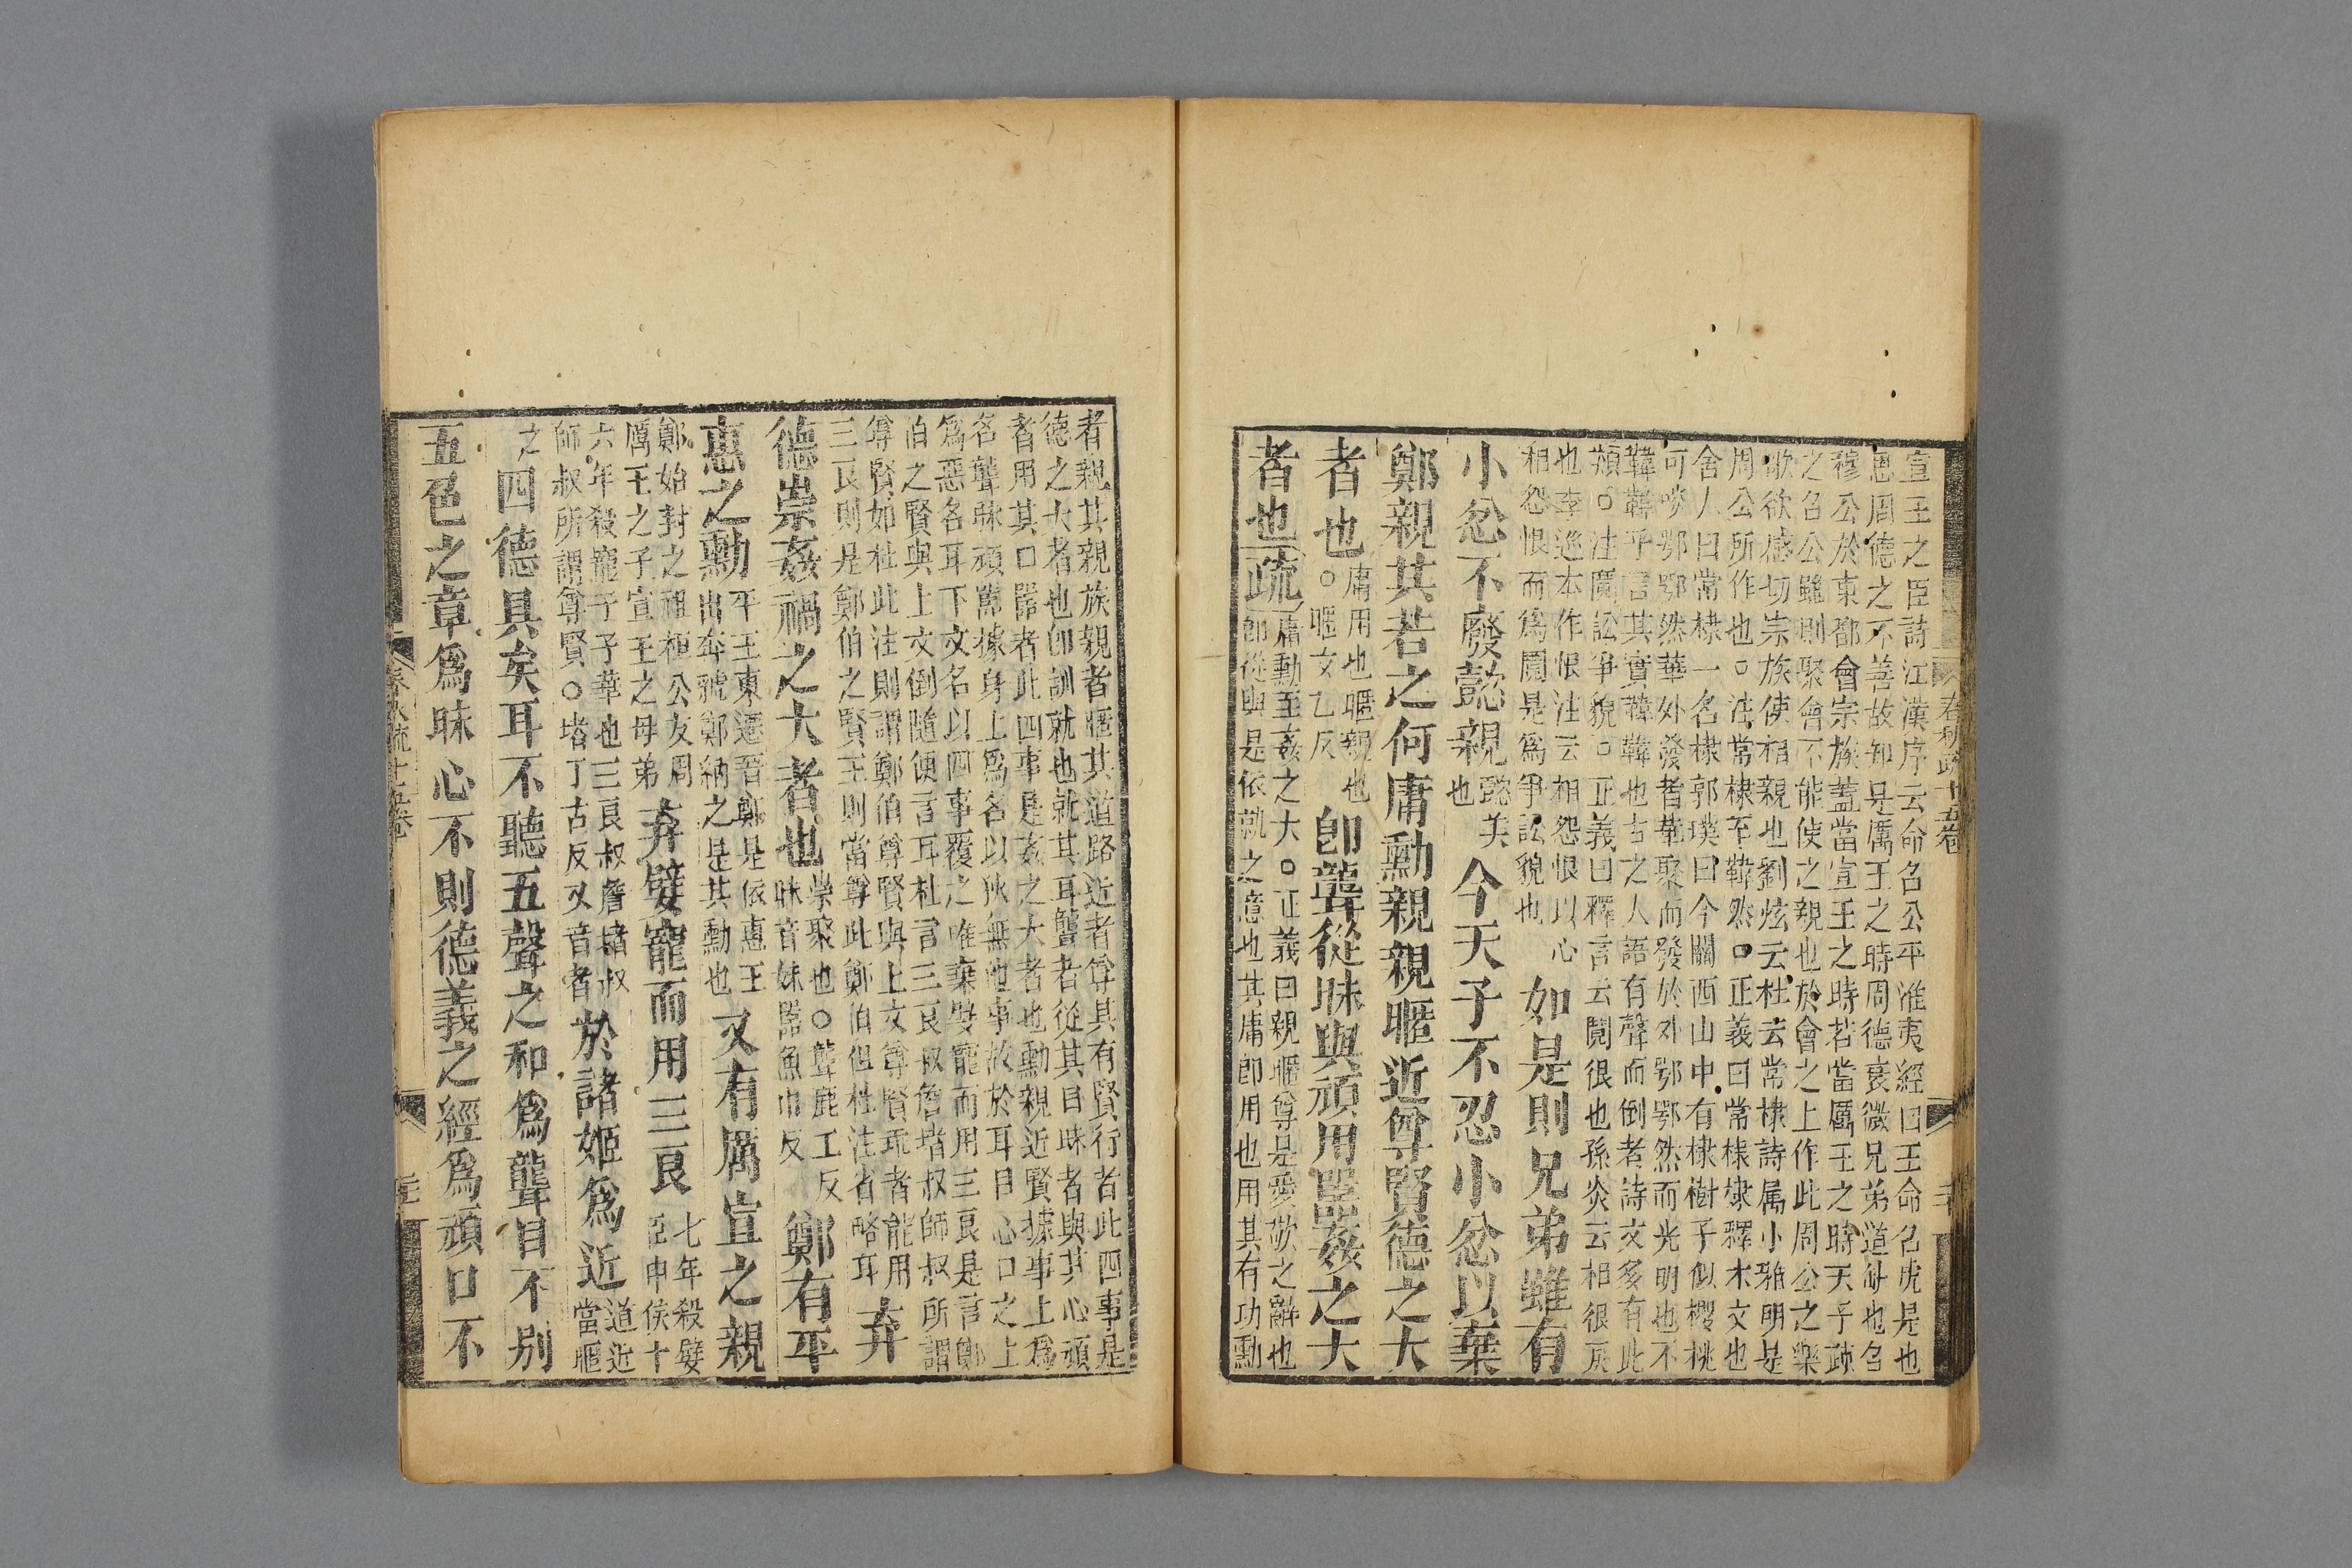 春秋疏十五卷
宣王之臣詩江漢序云命召公平淮夷經曰王命召虎是也
思周德之不善故知是厲王之時周德衰微兄弟道缺也召
穆公於東都會宗族蓋當宣王之時若當厲王之時天子疎
之召公雖則聚會不能使之親也於會之上作此周公之樂
歌欲感切宗族使相親也劉炫云杜云常棣詩属小雅明是
周公所作也○注常棣至韡然○正義曰常棣棣釋木文也
舍人曰常棣一名棣郭璞曰今關西山中有棣樹子似櫻桃
可啖鄂鄂然華外發者華聚而發於外鄂鄂然而光明也不
韡韡乎言其實韡韡也古之人語有聲而倒者詩文多有此
類○注鬩訟爭貌○正義曰釋言云鬩很也孫炎云相很戾
也李巡本作恨注云相怨恨以心
相怨恨而爲鬩是爲爭訟貌也
如是則兄弟雖有
小忿不廢懿親懿美也今天子不忍小忿以棄
鄭親其若之何庸勳親親暱近尊賢德之大
者也庸用也暱親也○暱女乙反即聾從昧與頑用嚚姦之大
者也疏庸勳至姦之大○正義曰親暱尊是愛敬之辭也
即從與是依就之意也其庸即用也用其有功勳
者親其親族親者暱其道路近者尊其有賢行者此四事是
德之大者也即訓就也就其耳聾者從其目昧者與其心頑
者用其口嚚者此四事是姦之大者也勳親近賢據事上爲
名聾昧頑嚚據身上爲名以狄無他事故於耳目心口之上
爲惡名耳下文名以四事覆之唯棄嬖寵而用三良是言鄭
伯之賢與上文倒隨便言耳杜言三良叔詹堵叔師叔所謂
尊賢如杜此注則謂鄭伯尊賢與上文尊賢乖者能用
三良則是鄭伯之賢王則當尊此鄭伯但杜注省略耳
弃
德崇姦禍之大者也崇聚也○聾鹿工反昧音妹嚚魚巾反鄭有平
惠之勳平王東遷晉鄭是依惠王出奔虢鄭納之是其勳也又有厲宣之親
鄭始封之祖桓公友周厲王之子宣王之母弟弃嬖寵而用三良七年殺嬖臣申侯十
六年殺寵子子華也三良叔詹堵叔師叔所謂尊賢○堵丁古反又音者於諸姬爲近道近當暱
之四德具矣耳不聽五聲之和爲聾目不别
五色之章爲昧心不則德義之經爲頑口不
春秋疏十五卷